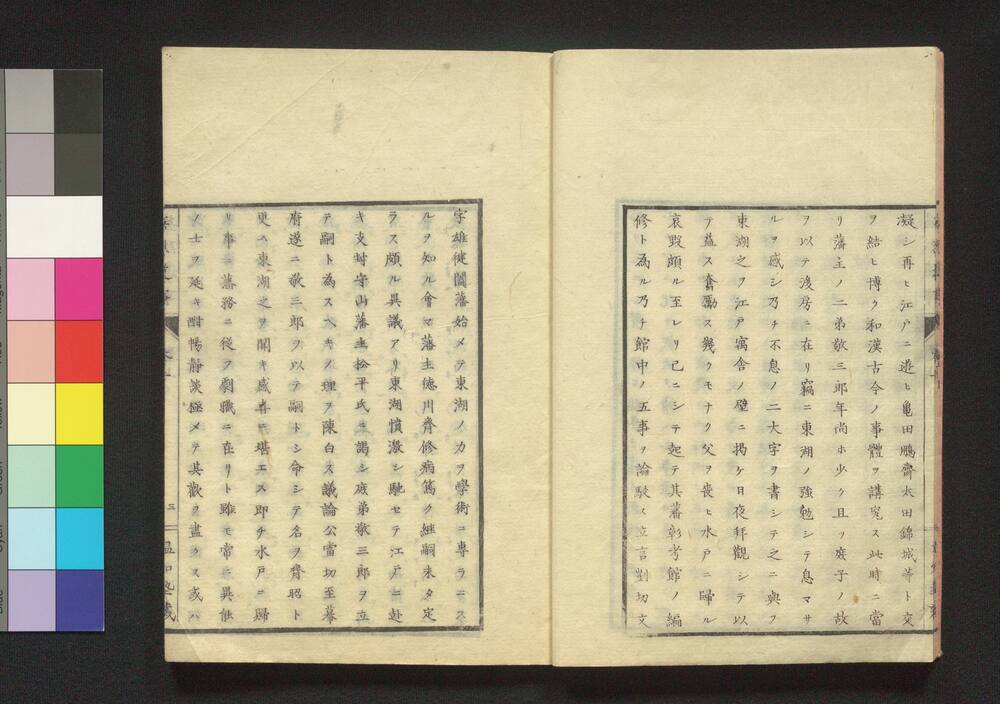 凝シ再ヒ江戸ニ遊ヒ亀田鵬齋太田錦城等ト交
ヲ結ヒ博ク和漢古今ノ事體ヲ講究ス此時ニ當
リ藩主ノ二弟敬三郎年尚ホ少ク且ツ庻子ノ故
ヲ以テ後房ニ在リ竊ニ東湖ノ強勉シテ息マサ
ルヲ感シ乃チ不息ノ二大字ヲ書シテ之ニ與フ
東湖之ヲ江戸寓舎ノ壁ニ掲ケ日夜拜觀シテ以
テ益ス奮勵ス幾クモナク父ヲ喪ヒ水戸ニ歸ル
哀毀頗ル至レリ已ニシテ起テ其藩彰考館ノ編
修ト為ル乃チ館中ノ五事ヲ論駁ス立言剴切文
字雄健闔藩始メテ東湖ノ力ヲ學術ニ專ラニス
ルヲ知ル會マ藩主徳川齊修病篤ク継嗣未タ定
ラス頗ル異議アリ東湖憤激シ馳セテ江戸ニ赴
キ支封守山藩主松平氏ニ謁シ庻弟敬三郎ヲ立
テ嗣ト為スヘキノ理ヲ陳白ス議論公當切至幕
府遂ニ敬三郎ヲ以テ嗣トシ命シテ名ヲ齊昭ト
更ヘ東湖之ヲ聞キ感喜ニ堪エス即チ水戸ニ歸
リ事ニ藩務ニ從フ劇職ニ在リト雖モ常ニ異能
ノ士ヲ延キ酣暢靜談極メテ其歡ヲ盡クス或ハ
三